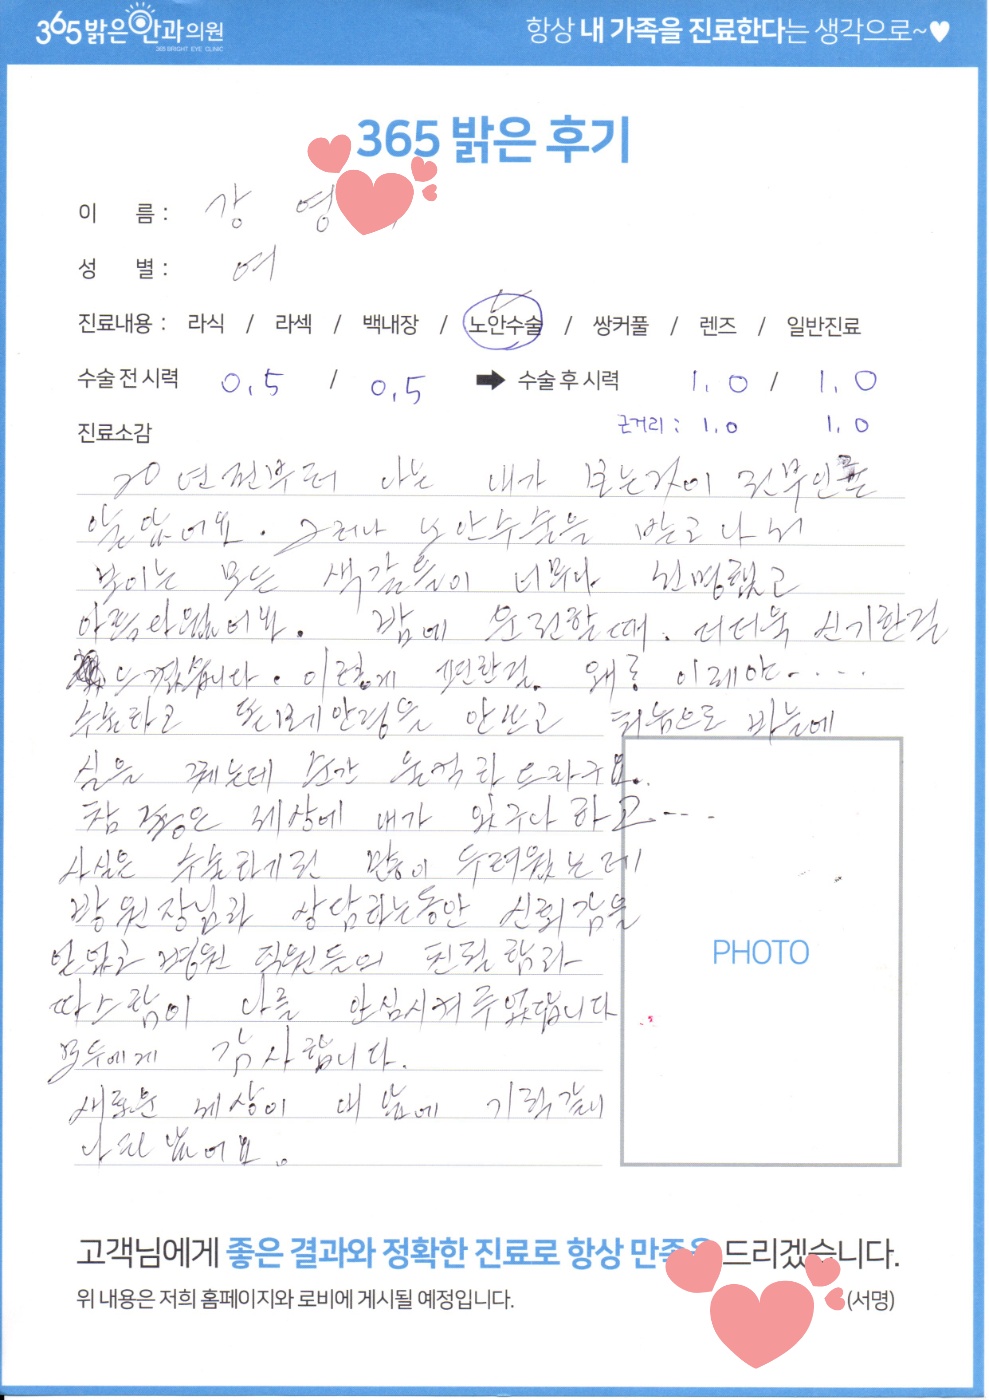 365밝은안과의원
365 BRIGHT EYE CLINIC
항상 내 가족을 진료한다는 생각으로~♥
365 밝은 후기
이 름 : 강 영
성 별 : 여
진료내용 : 라식 / 라섹 / 백내장 / 노안수술 / 쌍커풀 / 렌즈 / 일반진료
수술 전 시력 0.5 / 0.5 ➡ 수술 후 시력 1.0 / 1.0
근거리 : 1.0 1.0
진료소감
20년전부터 나는 내가 보는것이 전부인줄
알았어요. 그러나 노안수술을 받고 나서
보이는 모든 색감들이 너무나 선명했고
아름다웠어요. 밤에 운전할때. 더더욱 신기한걸
느꼈습니다. 이렇게 편한걸. 왜 이제야.....
수술하고 돋보기안경을 안쓰고 처음으로 바늘에
실을 꿰는데 순간 울컥 하드라구요..
참 좋은 세상에 내가 있구나 하고....
사실은 수술하기전 많이 두려웠는데
방원장님과 상담하는동안 신뢰감을
얻었고 병원 직원들의 친절함과
따스함이 나를 안심시켜주었답니다
모두에게 감사합니다.
새로운 세상이 내 앞에 기적같이
나타났어요.
PHOTO
고객님에게 좋은 결과와 정확한 진료로 항상 드리겠습니다.
위 내용은 저희 홈페이지와 로비에 게시될 예정입니다.
(서명)